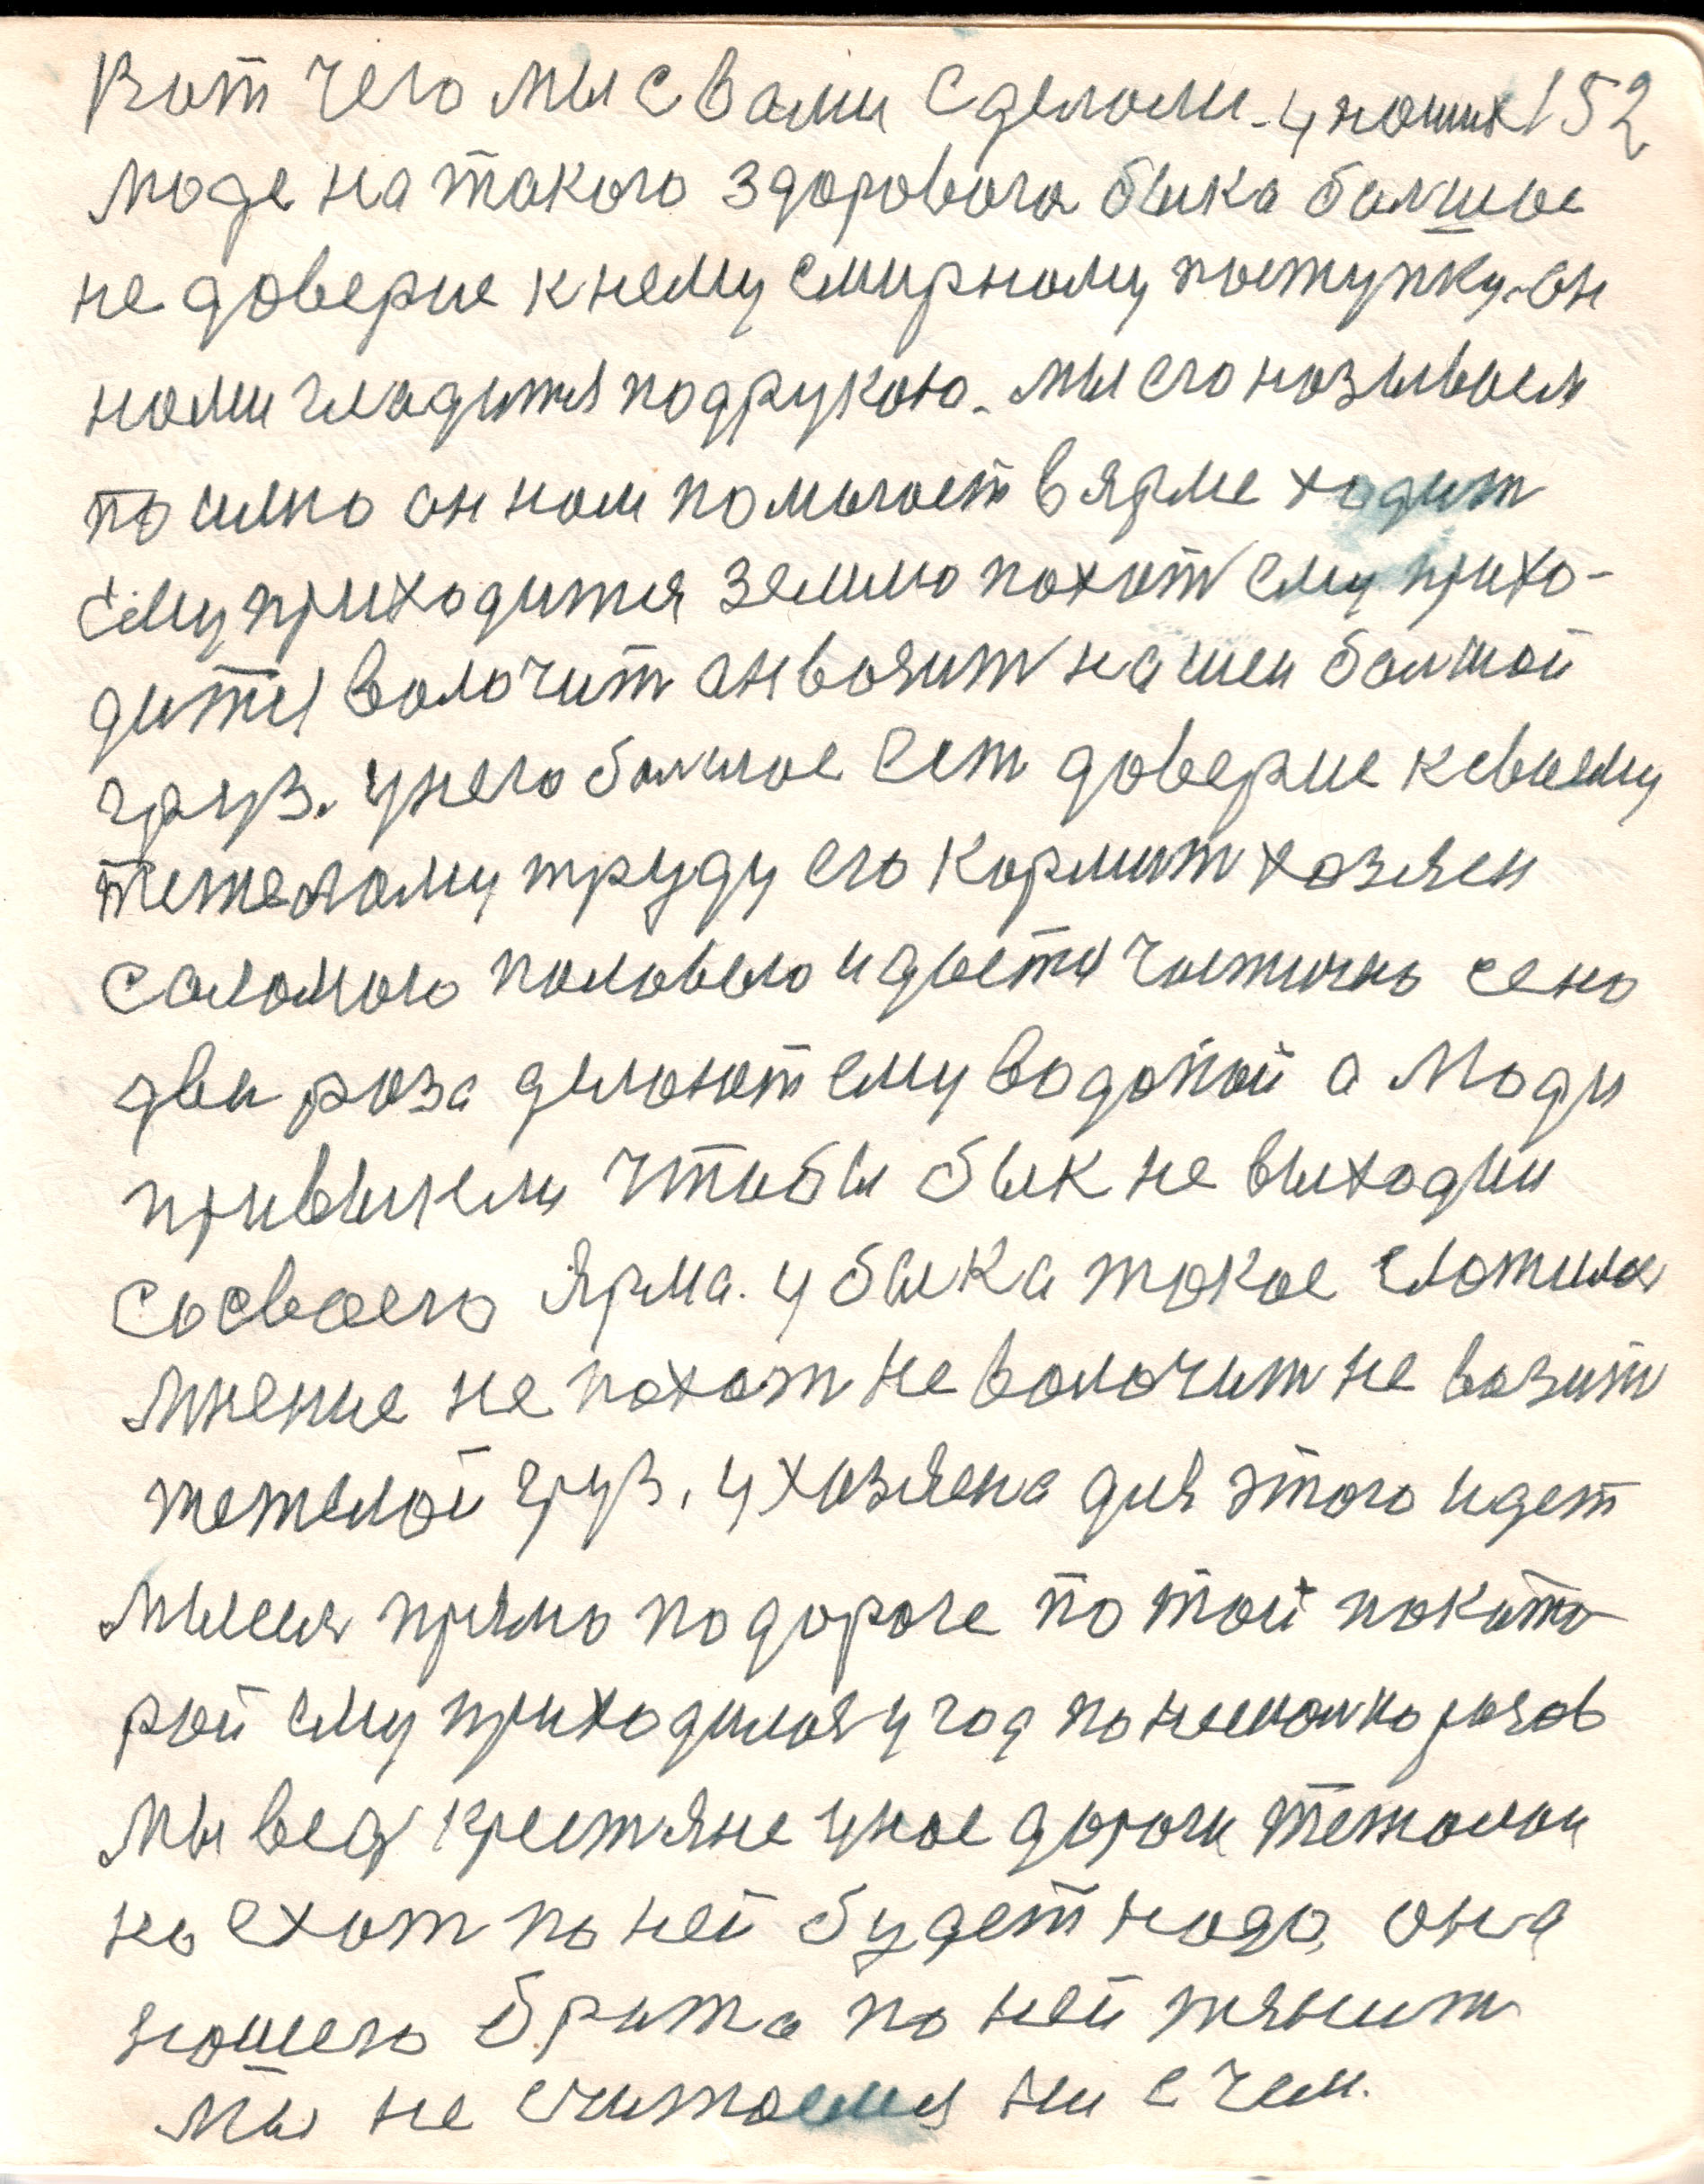 Вот чего мы с вами сделоли. у наших 152
люде на такого здоровога быка балшое
не доверие к нему смирному поступку. он
нами гладится под рукою. мы его называем
он нам помогает в ярме ходит
ему приходится землю пахат ему прихо-
дится волочит он возит на шеи балшой
груз. у него балшое ест доверие к своему
тежолому труду его кормит хозяен
саломою половою и дается частично сено
два раза делают ему водопой а люди
привыкли чтобы бык не выходил
со своего ярма. у быка токое сложилос
мнение не пахат не волочит не возит
тежелой груз. у хозяена для этого идет
мысля прямо по дороге по той по като-
рой ему приходился у год по несколко разов
мы вед крестяне у нас дороги тежолаи
но ехат по ней будет надо она
нашего брата по ней тянит
мы не считаемся ни с чем.